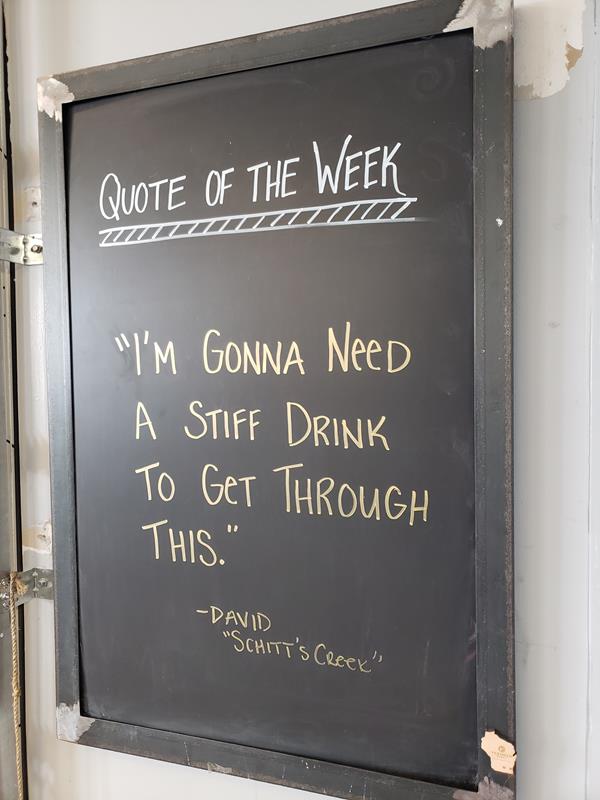 Quote of the Week
"I'm Gonna Need
A Stiff Drink
To Get Through
This."
-David
"Schitt's Creek"